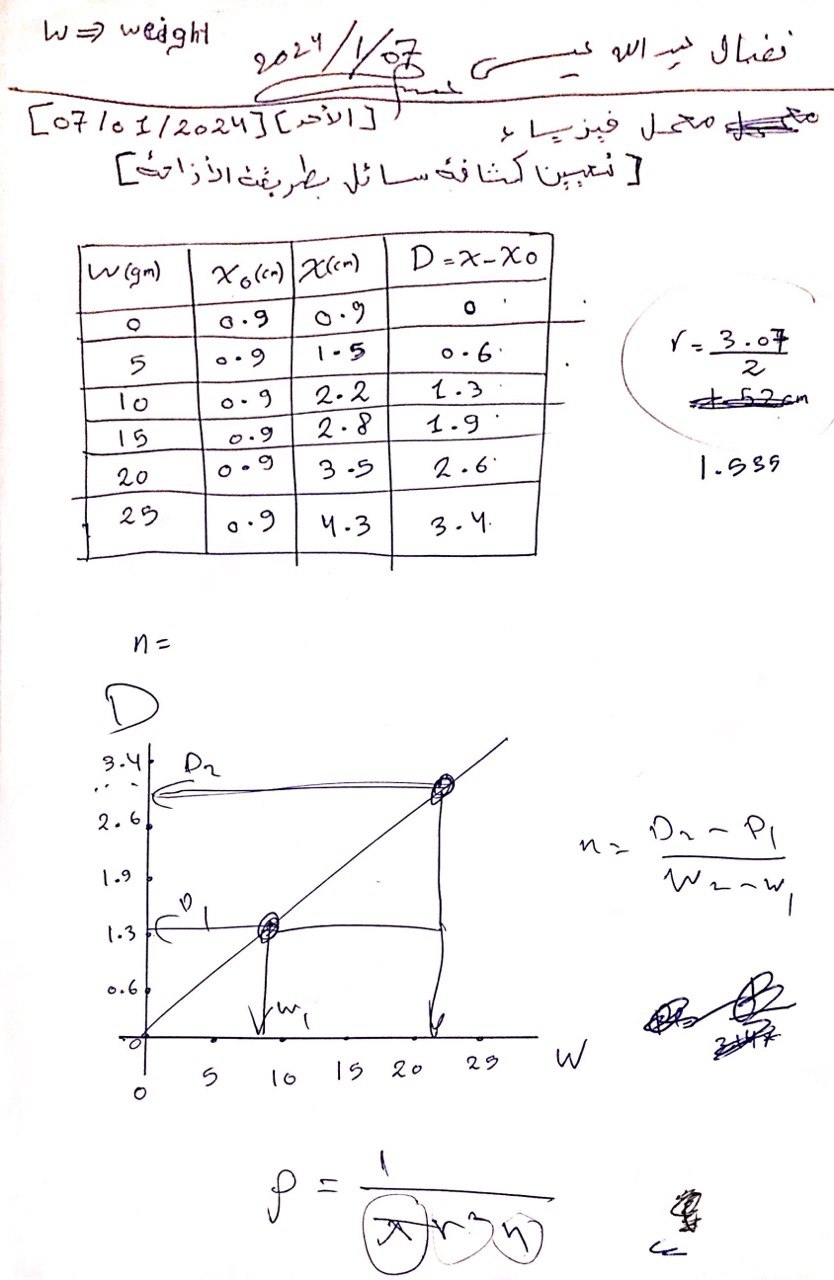 W ⇒ weight
2024/1/07
نضال عبد الله عيسى
[07/01/2024] [الأحد]
معمل فيزياء
[تعيين كثافة سائل بطريقة الأزاحة]
W(gm) X₀(cm) X(cm) D = X - X₀
0 0.9 0.9 0
5 0.9 1.5 0.6
10 0.9 2.2 1.3
15 0.9 2.8 1.9
20 0.9 3.5 2.6
25 0.9 4.3 3.4
r = 3.07 / 2
1.535
n =
D
3.4
D₂
2.6
1.9
D₁
1.3
0.6
W₁
0
0 5 10 15 20 25 W
n = D₂ - D₁ / W₂ - W₁
ρ = 1 / π r² n